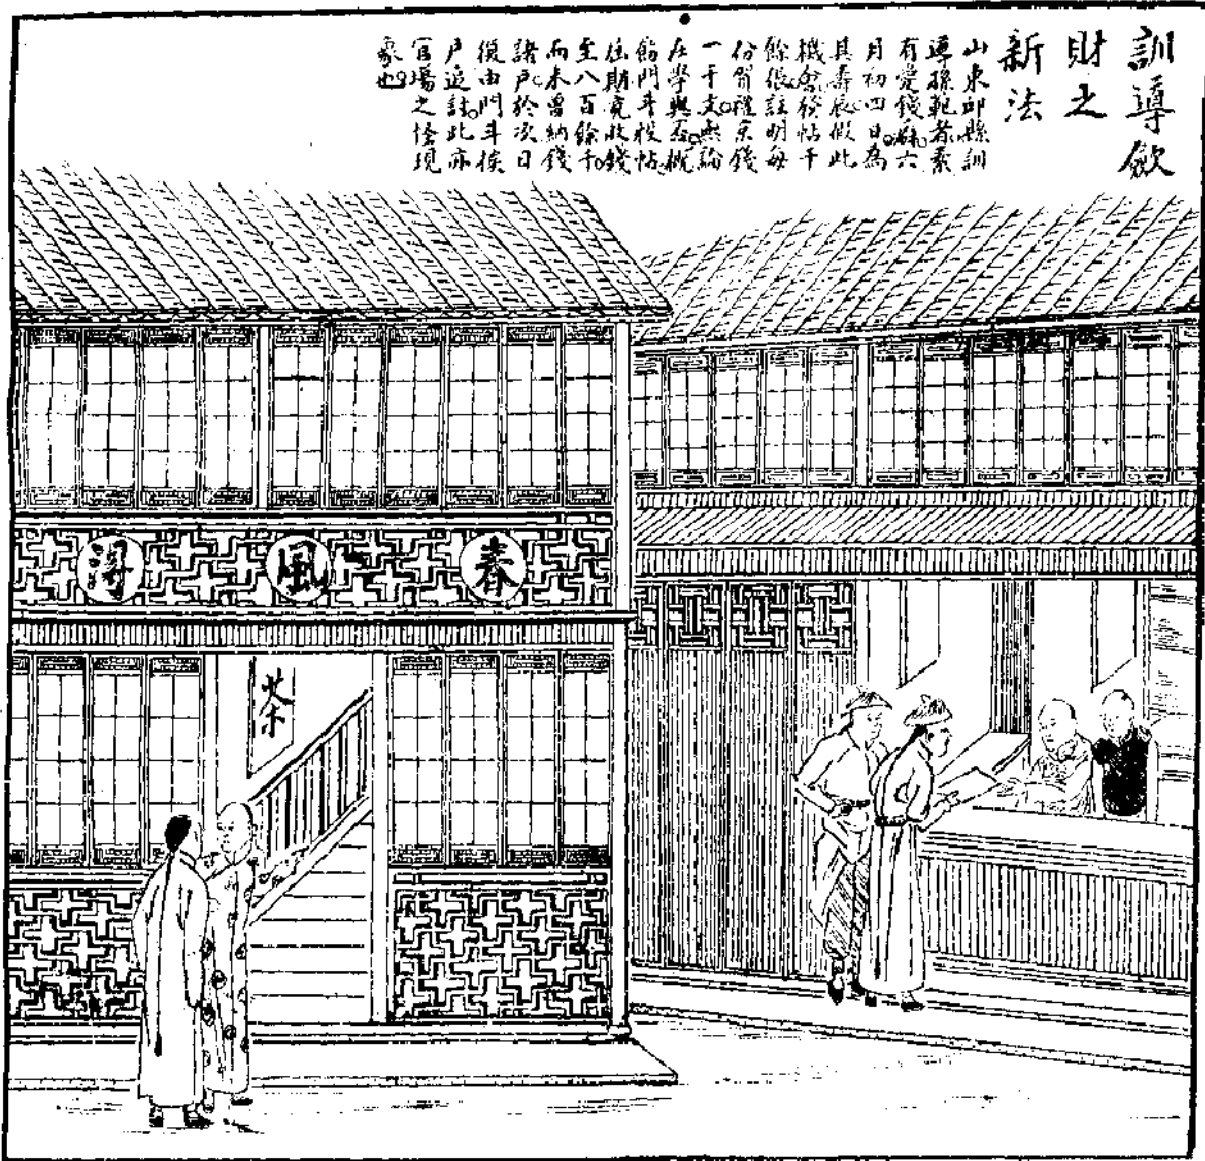 訓導斂
財之
新法
山東邱縣訓
導孫範者素
有愛錢癖六
月初四日為
其壽辰假此
機會發帖千
餘張註明每
份賀禮京錢
一千文無論
在學與否概
飭門斗投帖
屆期竟收錢
至八百餘千
而未曾納錢
諸戶於次日
復由門斗挨
戶追討此亦
官場之怪現
象也
春風得
茶